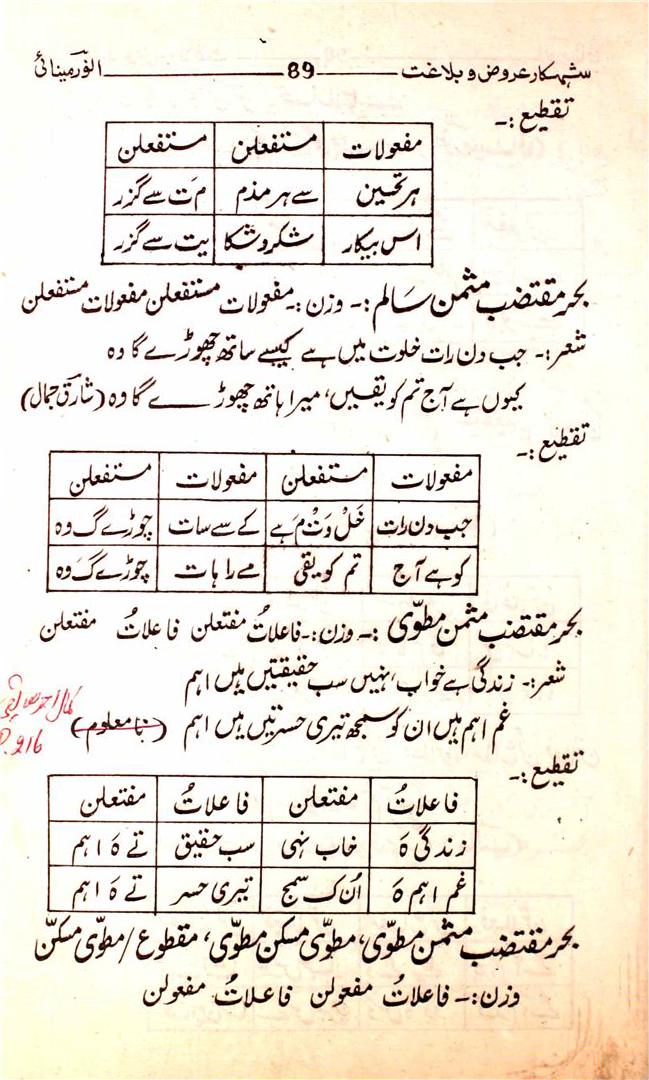 شہکار عروض و بلاغت 89 انور مینائی
تقطیع :۔
مفعولات مستفعلن مستفعلن
ہر تحسین سے ہر مذم مَت سے گزر
اس بیکار شکر و شکا یت سے گزر
بحر مقتضب مثمن سالم :۔ وزن :۔ مفعولات مستفعلن مفعولات مستفعلن
شعر :۔ جب دن رات خلوت میں ہے کیسے ساتھ چھوڑے گا وہ
کیوں ہے آج تم کو یقیں، میرا ہاتھ چھوڑے گا وہ (شارق جمال)
تقطیع :۔
مفعولات مستفعلن مفعولات مستفعلن
جب دن رات خَلْ وَتْ مِ ہے کے سے سات چوڑے گَ وہ
کو ہے آج تم کو یقی مے را ہات چوڑے گَ وہ
بحر مقتضب مثمن مطوّی :۔ وزن :۔ فاعلاتُ مفتعلن فاعلاتُ مفتعلن
شعر :۔ زندگی ہے خواب، نہیں سب حقیقتیں ہیں اہم
غم اہم ہیں ان کو سمجھ تیری حسرتیں ہیں اہم (نامعلوم)
کمال احمد صدیقی
P.216
تقطیع :۔
فاعلاتُ مفتعلن فاعلاتُ مفتعلن
زندگی ہَ خاب نہی سب حقیق تے ہَ اہم
غم اہم ہَ اُن ک سمج تیری حسر تے ہَ اہم
بحر مقتضب مثمن مطوّی، مطوّی مسکن مطوّی، مقطوع / مطوّی مسکّن
وزن :۔ فاعلاتُ مفعولن فاعلاتُ مفعولن